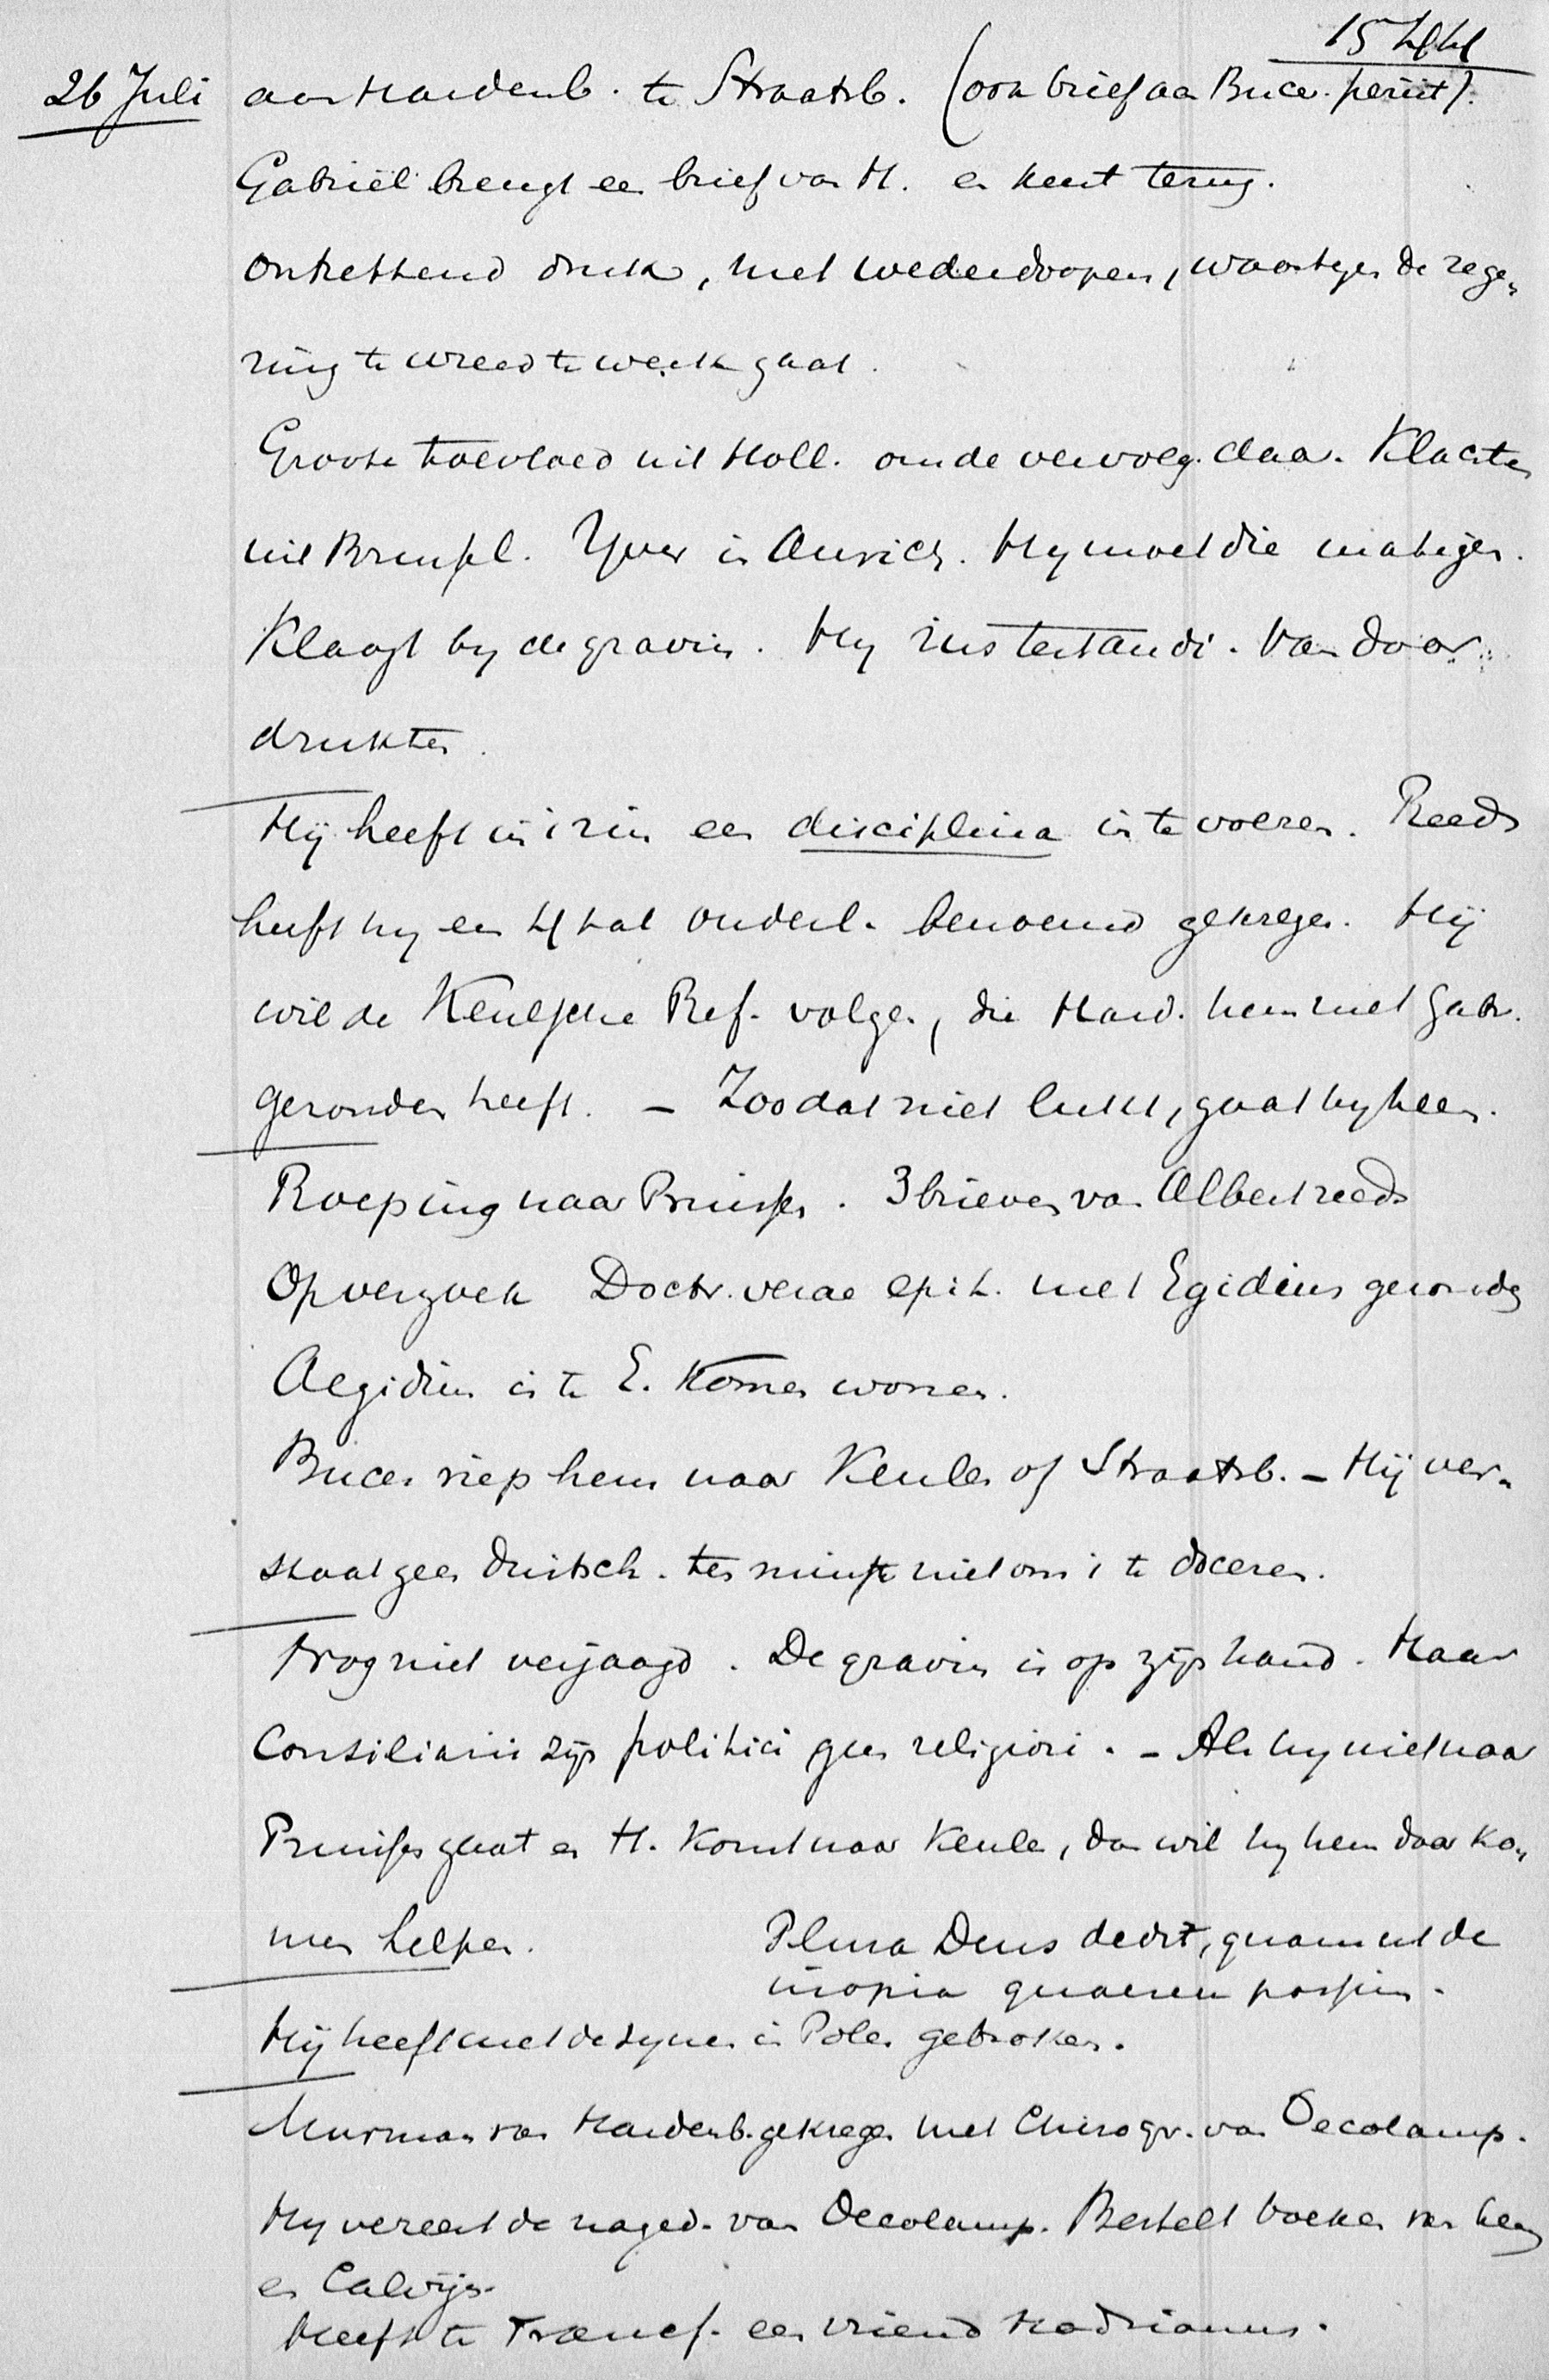 1544
26 Juli aan Hardenb. te Straatsb. (ook brief aan Bucer. periit).
Gabriël brengt een brief van H. en keert terug.
Ontzettend druk, met wederdoopers, waartegen de rege-
ring te wreed te werk gaat.
Groote toevloed uit Holl. om de vervolg. daar. Klachten
uit Brussel. Yver in Aurich. Hy moet die matigen.
Klaagt by de gravin. Hy ius testandi. Van daar
drukten.
Hij heeft in zin een disciplina in te voeren. Reeds
heeft hy een 4 tal ouderl. benoemd gekregen. Hij
wil de Keulsche Ref. volgen, die Hard. hem met Gabr.
gezonden heeft. – Zoo dat niet lukt, gaat hy heen.
Roeping naar Pruissen. 3 brieven van Albert reeds
Op verzoek Doctr. verae epit. met Egidius gezonden
Aegidius is te E. komen wonen.
Bucer riep hem naar Keulen of Straatsb. – Hij ver-
staat geen duitsch. ten minste niet om i te doceren.
Nog niet verjaagd. De gravin is op zijn hand. Haar
Consiliarii zijn politici geen religiosi. – Als hy niet naar
Pruissen gaat en H. komt naar Keulen, dan wil hy hem daar ko-
men helpen. Plura Deus dedit, quam ut de
inopia queri possim.
Hij heeft met de zynen in Polen gebroken.
Murman van Hardenb. gekregen met Chirogr. van Oecolamp.
Hy vereert de naged. van Oecolamp. Bestelt boeken van hem
en Calvijn.
Heeft te Francf. een vriend Hadrianus.